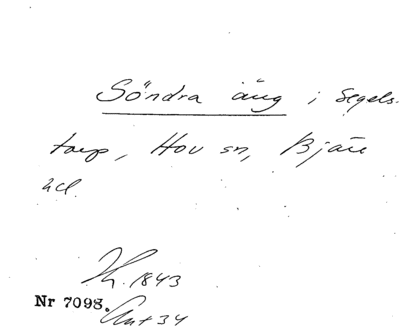 Söndra äng i Segels-
torp, Hov sn, Bjäre
hd.
Kt. 1843
Nr 7098.
Akt 34